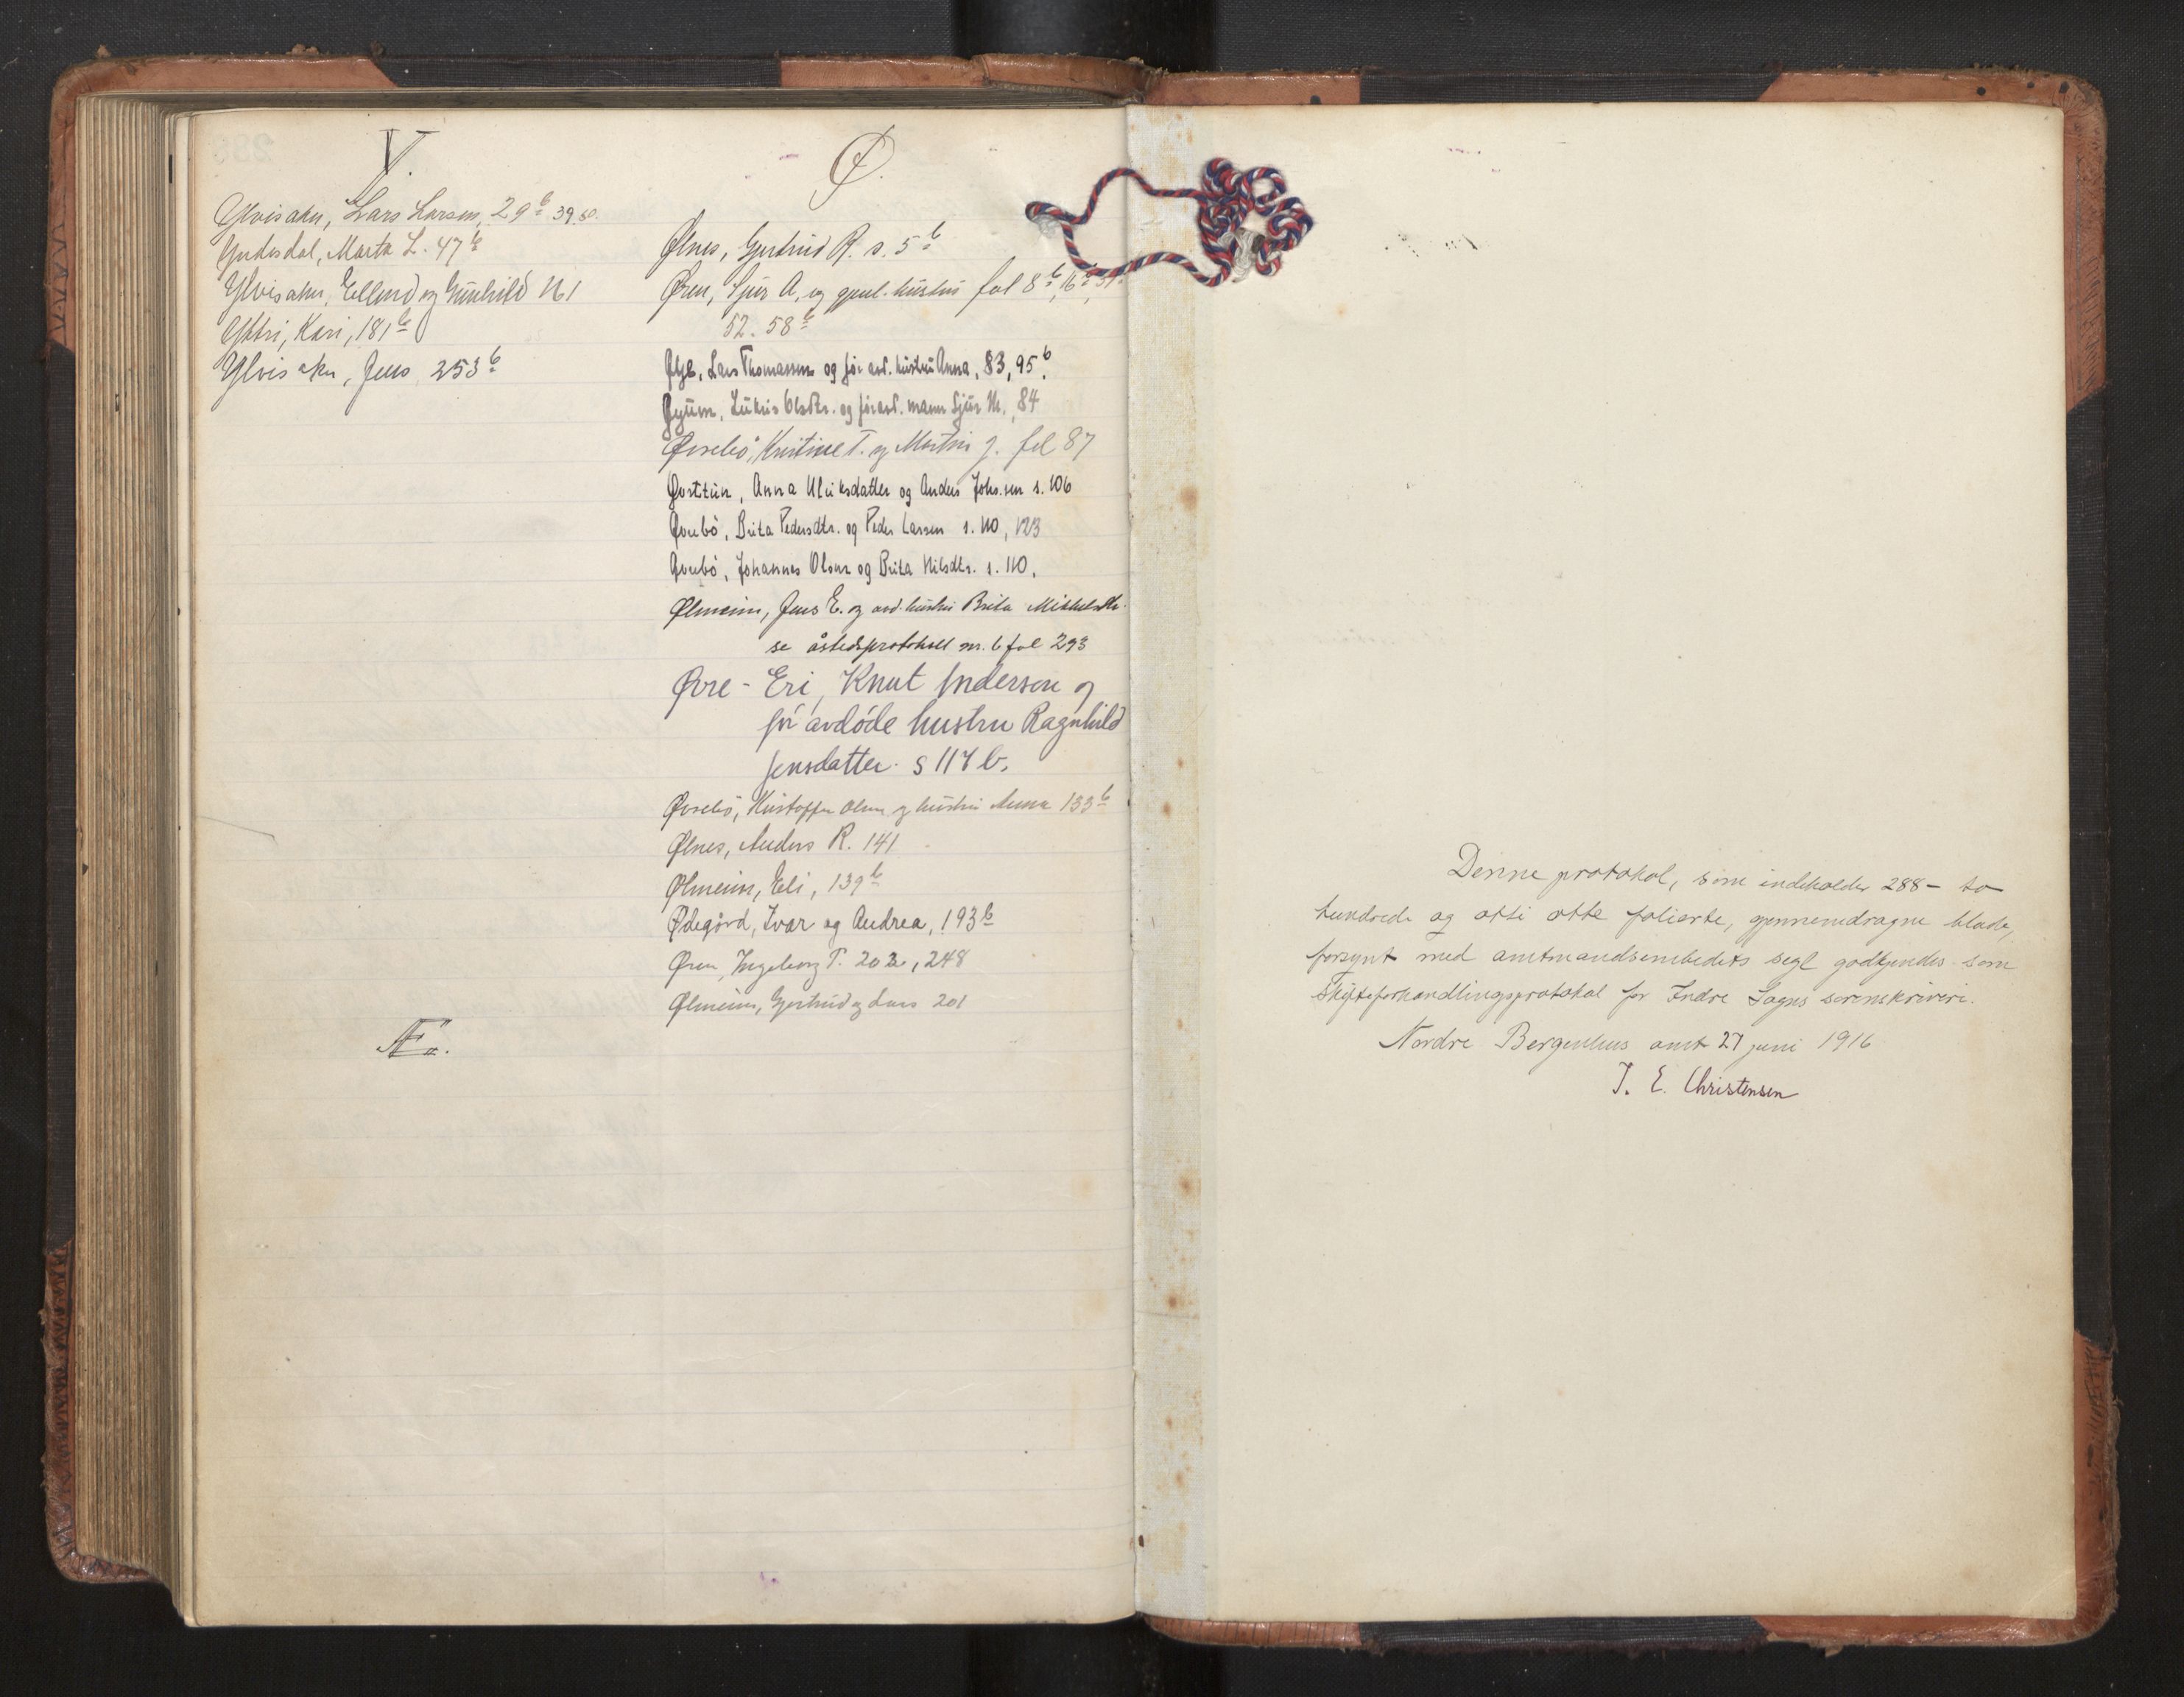 Y.
Ylvisaker, Lars Larsen, 29b 39. 50.
Yndesdal, Marta L. 47b
Ylvisaker, Ellend og Gunhild 161
Yttri, Kari, 181b
Ylvisaker, Jens 253b
Æ.
Ø.
Ølnes, Gjertrud R. s. 5b
Øren, Sjur A. og gjenl. hustru fol 8b, 16b, 31
52. 58b
Øye, Lars Thomassen og før avd. hustru Anna, 83, 95b.
Øyum, Lukris Olsdtr. og før avd. mann Sjur M., 84
Øvrebø, Kristine T. og Martin J. fol 87
Øvsttun, Anna Ulriksdatter og Anders Johs.sen s. 106
Øvrebø, Brita Pedersdtr. og Peder Larsen s. 110, 123
Øvrebø, Johannes Olsen og Brita Nilsdtr. s. 110.
Ølmeim, Jens E. og avd. hustru Brita Mikkelsdtr.
se åstedsprotokoll nr. 6 fol 293
Øvre-Eri, Knut Anderson og
før avdøde hustru Ragnhild
Jensdatter. s 117 b.
Øvrebø, Kristoffer Olsen og hustru Anna 133b
Ølnes, Anders R. 141
Ølmeim, Eli, 139b
Ødegård, Ivar og Andrea, 193b
Øren, Ingeborg T. 202, 248
Ølmeim, Gjertrud og Lars 201
Denne protokol, som indeholder 288 - to
hundrede og otti otte folierte, gjennemdragne blade,
forsynt med amtmandsembedets segl godkjendes som
skifteforhandlingsprotokol for Indre Sogns sorenskriveri.
Nordre Bergenhus amt 27 juni 1916
I. E. Christensen